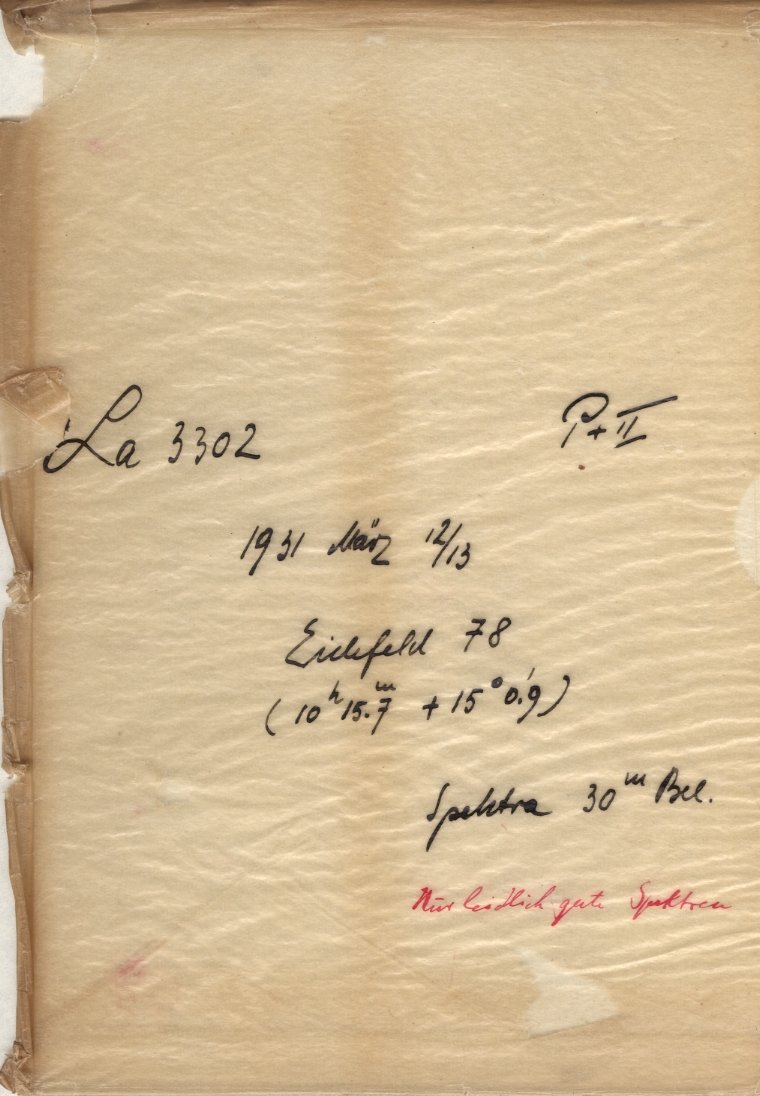 La 3302 P + II
1931 März 12/13
Eichfeld 78
(10ʰ 15.7ᵐ + 15° 0.'9)
Spektra 30ᵐ Bel.
Nur leidlich gute Spektren